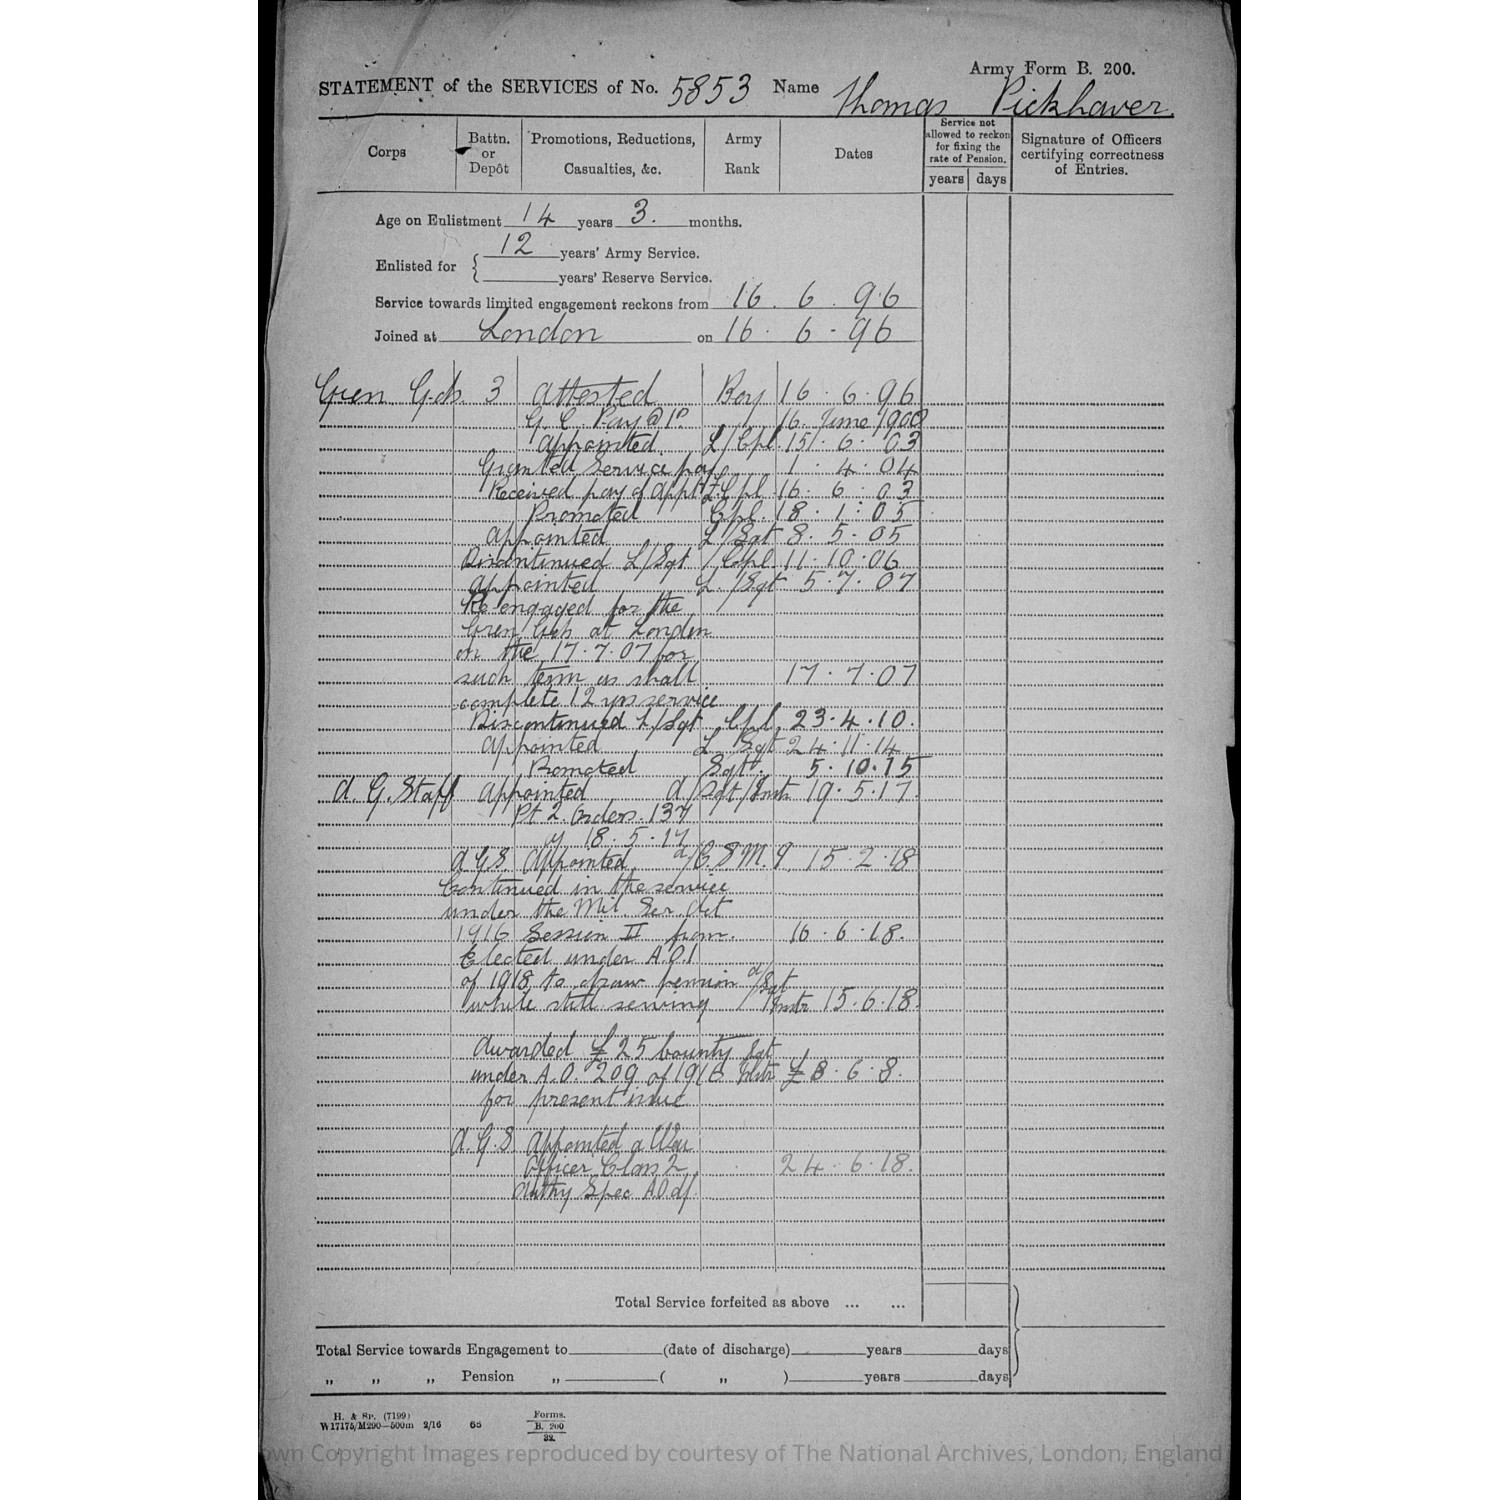 Army Form B. 200.
STATEMENT of the SERVICES of No. 5853 Name Thomas Pickhaver.
Corps Battn. or Depôt Promotions, Reductions, Casualties, &c. Army Rank Dates Service not allowed to reckon for fixing the rate of Pension. years days Signature of Officers certifying correctness of Entries.
Age on Enlistment 14 years 3. months.
Enlisted for 12 years' Army Service.
years' Reserve Service.
Service towards limited engagement reckons from 16. 6. 96
Joined at London on 16. 6. 96
Gren Gds. 3 Attested Boy 16. 6. 96
G. C. Pay @ 1D. 16. June 1900
Appointed L/Cpl. 15. 6. 03
Granted Service pay 1. 4. 04
Received pay of appt L.Cpl. 16. 6. 03
Promoted Cpl. 18. 1. 05
Appointed L/Sgt 8. 5. 05
Discontinued L/Sgt /Cpl. 11. 10. 06
Appointed L./Sgt 5. 7. 07
Re-engaged for the
Gren Gds at London
on the 17. 7. 07 for
such term as shall 17. 7. 07
complete 12 yrs service
Discontinued L/Sgt Cpl. 23. 4. 10.
Appointed L Sgt 24. 11. 14
Promoted Sgt. 5. 10. 15
A. G. Staff Appointed A/Sgt/Instr 19. 5. 17.
Pt 2. Orders. 137
18. 5. 17
A.G.S. Appointed a/C.S.M. 15. 2. 18
Continued in the service
under the Mil. Ser. Act
1916 Session II from. 16. 6. 18.
Elected under A.O.1
of 1918 to draw pension a/Sgt
while still serving /Instr 15. 6. 18.
Awarded £25 bounty Sgt
under A.O. 209 of 1916 Instr £8. 6. 8.
for present issue
A.G.S. Appointed a War
Officer Class 2 24. 6. 18.
Authy Spec A.O.
Total Service forfeited as above ... ...
Total Service towards Engagement to (date of discharge) years days
„ „ „ Pension „ ( „ ) years days
H. & Sp. (7199)
W17175/M290—500m 2/16 65
Forms.
B. 200
32.
own Copyright Images reproduced by courtesy of The National Archives, London, England